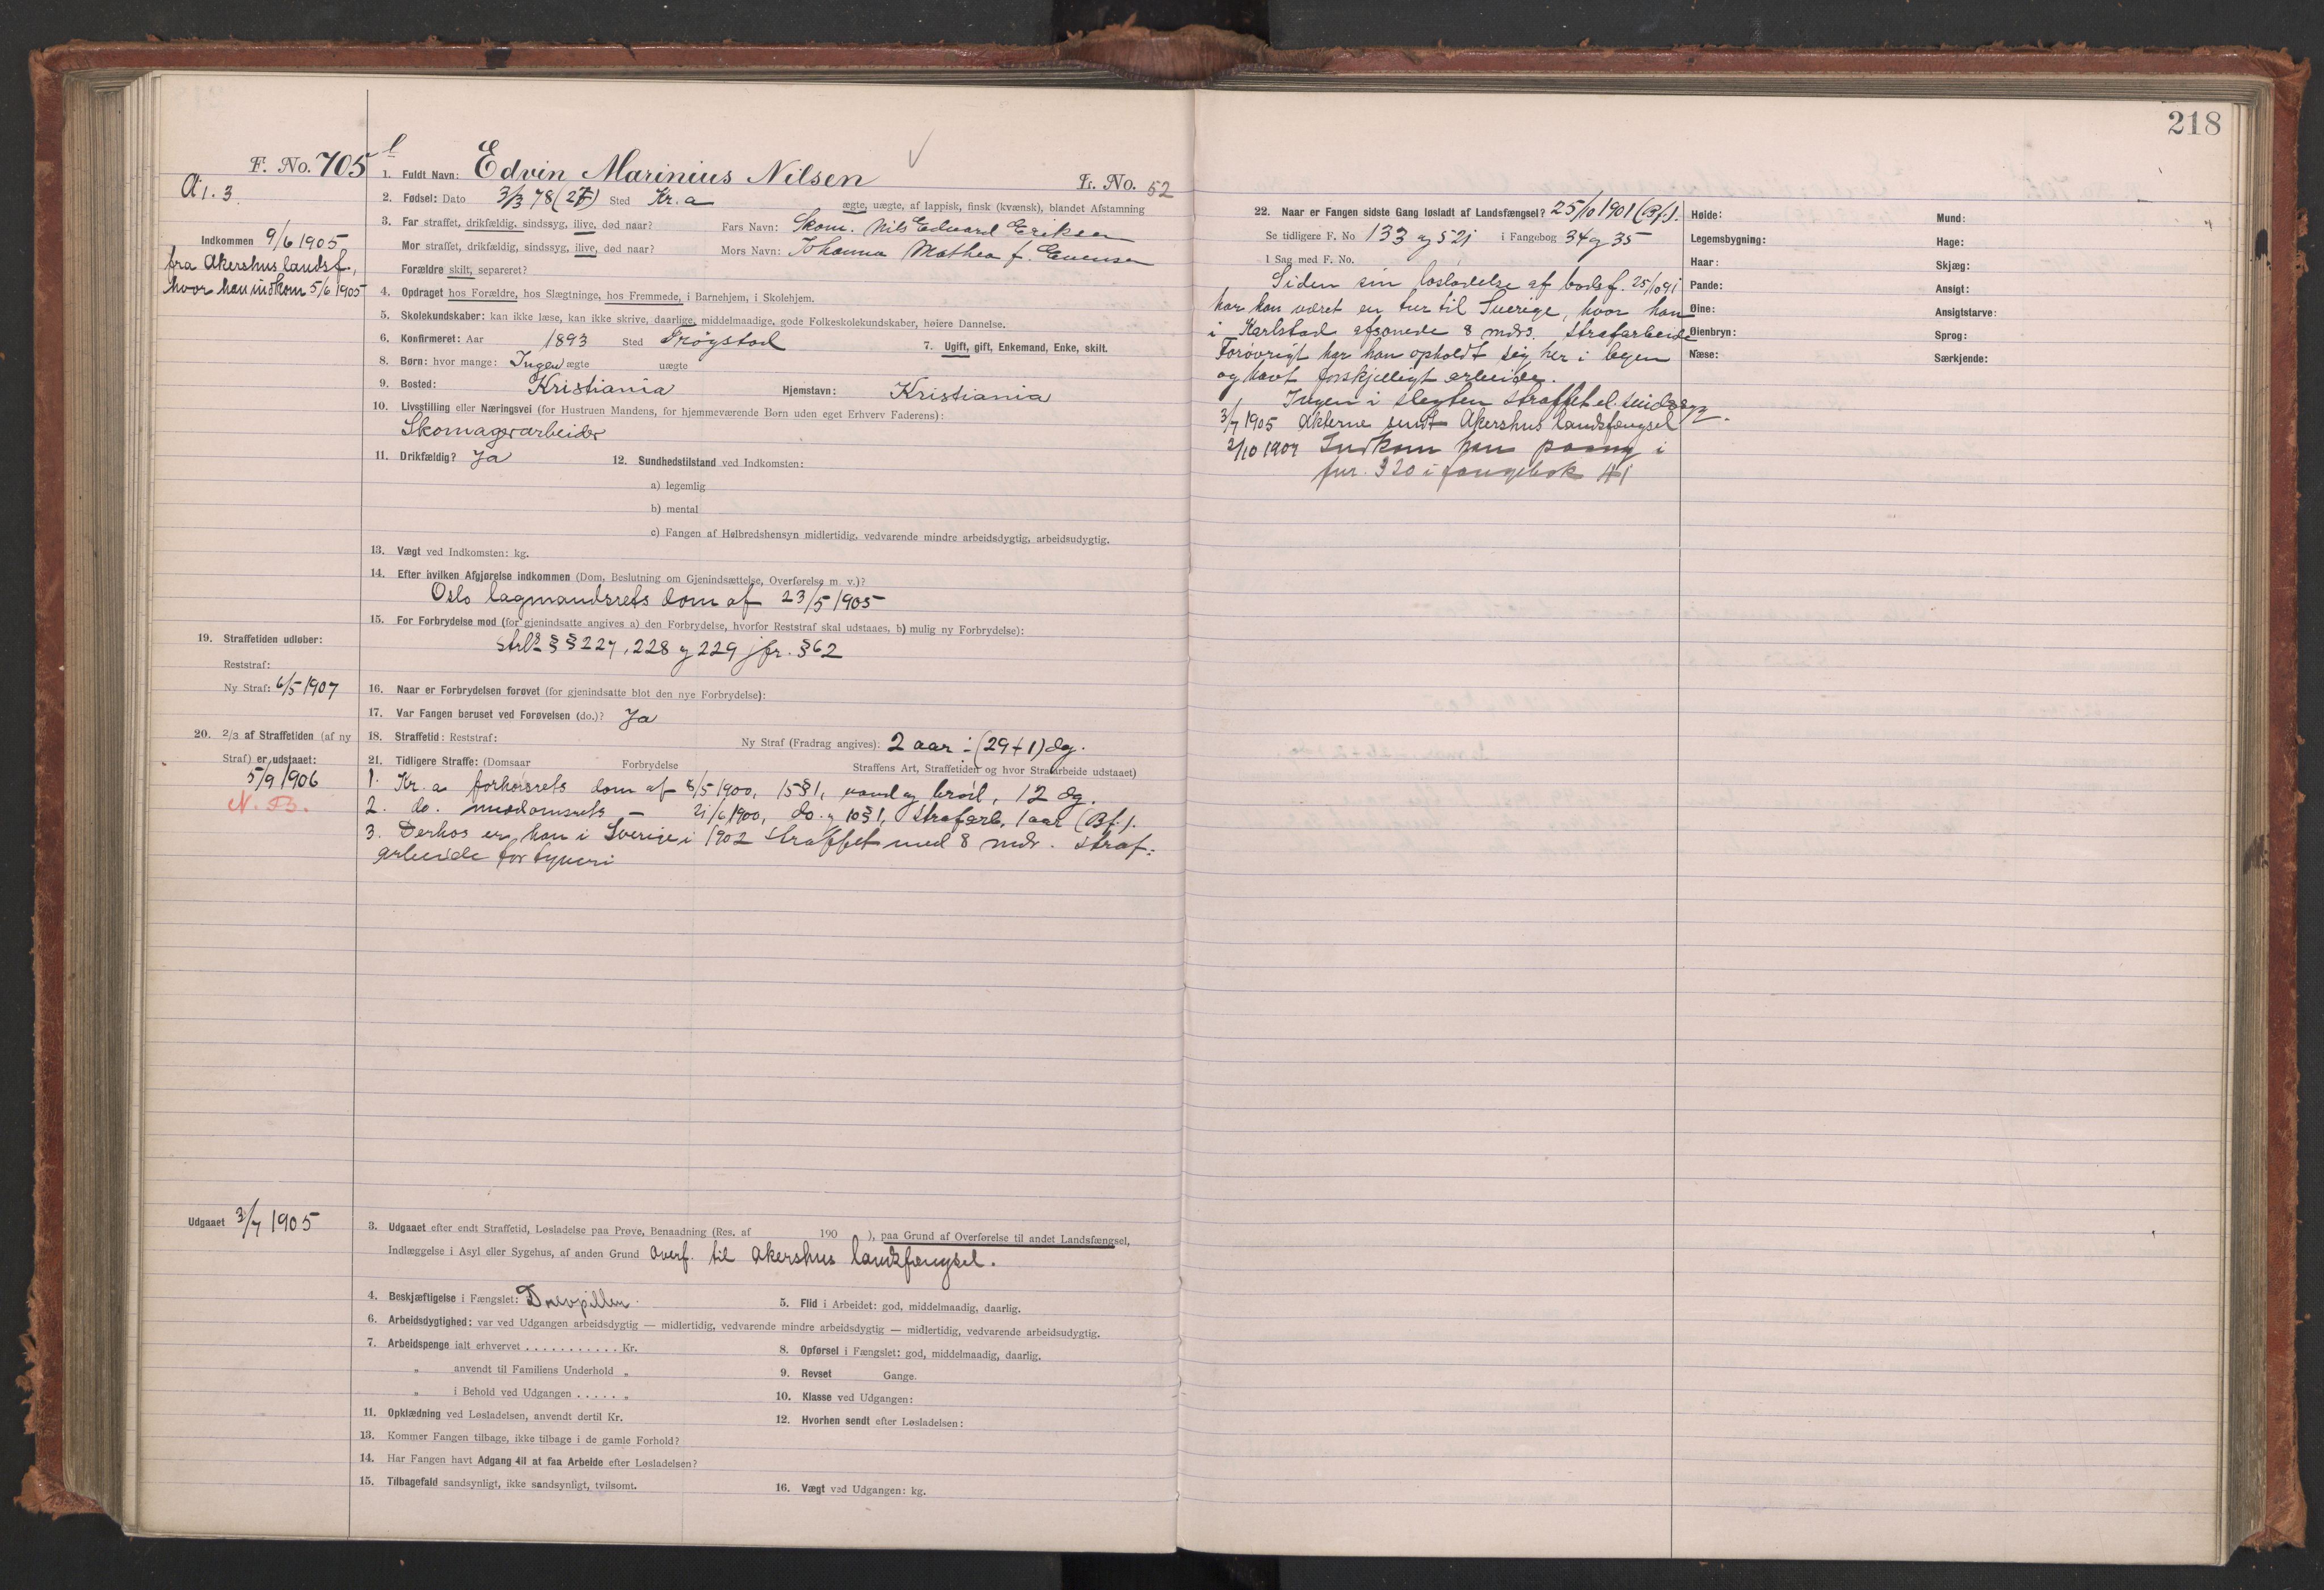 218
F. No. 705
Ai. 3
Indkommen 9/6 1905
fra Akershus landsf.,
hvor han indkom 5/6 1905
1. Fuldt Navn: Edvin Marinius Nilsen
Fr. No. 52
2. Fødsel: Dato 3/3 78 (27) Sted Kr.a
ægte, uægte, af lappisk, finsk (kvænsk), blandet Afstamning
3. Far straffet, drikfældig, sindssyg, ilive, død naar? Fars Navn: Skom. Nils Edvard Eriksen
Mor straffet, drikfældig, sindssyg, ilive, død naar? Mors Navn: Johanna Mathea f. Evensen
Forældre skilt, separeret?
4. Opdraget hos Forældre, hos Slægtninge, hos Fremmede, i Barnehjem, i Skolehjem.
5. Skolekundskaber: kan ikke læse, kan ikke skrive, daarlige, middelmaadige, gode Folkeskolekundskaber, høiere Dannelse.
6. Konfirmeret: Aar 1893 Sted Trøgstad 7. Ugift, gift, Enkemand, Enke, skilt.
8. Børn: hvor mange: Ingen ægte uægte
9. Bosted: Kristiania Hjemstavn: Kristiania
10. Livsstilling eller Næringsvei (for Hustruen Mandens, for hjemmeværende Børn uden eget Erhverv Faderens):
Skomagerarbeider
11. Drikfældig? Ja 12. Sundhedstilstand ved Indkomsten:
a) legemlig
b) mental
c) Fangen af Helbredshensyn midlertidig, vedvarende mindre arbeidsdygtig, arbeidsudygtig.
13. Vægt ved Indkomsten: kg.
14. Efter hvilken Afgjørelse indkommen (Dom, Beslutning om Gjenindsættelse, Overførelse m. v.)?
Oslo lagmandsrets dom af 23/5 1905
15. For Forbrydelse mod (for gjenindsatte angives a) den Forbrydelse, hvorfor Reststraf skal udstaaes, b) mulig ny Forbrydelse):
Strl §§ 227, 228 og 229 jfr. § 62
16. Naar er Forbrydelsen forøvet (for gjenindsatte blot den nye Forbrydelse):
17. Var Fangen beruset ved Forøvelsen (do.)? Ja
18. Straffetid: Reststraf: Ny Straf (Fradrag angives): 2 aar ÷ (29 + 1) dg.
19. Straffetiden udløber:
Reststraf:
Ny Straf: 6/5 1907
20. 2/3 af Straffetiden (af ny
Straf) er udstaaet:
5/9 1906
N. B.
21. Tidligere Straffe: (Domsaar Forbrydelse Straffens Art, Straffetiden og hvor Strafarbeide udstaaet)
1. Kr.a forhørsrets dom af 8/5 1900, 15 § 1, vand og brød, 12 dg.
2. do. meddomsrets — 21/6 1900, do. og 10 § 1, Strafarb. 1 aar (Bf.).
3. Derhos er han i Sverige i 1902 straffet med 8 mdr. straf=
arbeide for tyveri
Udgaaet 3/7 1905
3. Udgaaet efter endt Straffetid, Løsladelse paa Prøve, Benaadning (Res. af 190 ), paa Grund af Overførelse til andet Landsfængsel,
Indlæggelse i Asyl eller Sygehus, af anden Grund Overf. til Akershus landsfængsel.
4. Beskjæftigelse i Fængslet: Drevpiller 5. Flid i Arbeidet: god, middelmaadig, daarlig.
6. Arbeidsdygtighed: var ved Udgangen arbeidsdygtig — midlertidig, vedvarende mindre arbeidsdygtig — midlertidig, vedvarende arbeidsudygtig.
7. Arbeidspenge ialt erhvervet . . . . . . . . . . . Kr. 8. Opførsel i Fængslet: god, middelmaadig, daarlig.
„ anvendt til Familiens Underhold „ 9. Revset Gange.
„ i Behold ved Udgangen . . . . . „ 10. Klasse ved Udgangen:
11. Opklædning ved Løsladelsen, anvendt dertil Kr. 12. Hvorhen sendt efter Løsladelsen:
13. Kommer Fangen tilbage, ikke tilbage i de gamle Forhold?
14. Har Fangen havt Adgang til at faa Arbeide efter Løsladelsen?
15. Tilbagefald sandsynligt, ikke sandsynligt, tvilsomt. 16. Vægt ved Udgangen: kg.
22. Naar er Fangen sidste Gang løsladt af Landsfængsel? 25/10 1901 (Bf.).
Se tidligere F. No 133 og 521 i Fangebog 34 og 35
I Sag med F. No.
Siden sin løsladelse af bodsf. 25/10 91
har han været en tur til Sverige, hvor han
i Karlstad afsonede 8 mdrs. strafarbeide
Forøvrigt har han opholdt sig her i byen
og havt forskjelligt arbeide.
Ingen i slegten straffet el. sindssyg.
3/7 1905 Akterne sendt Akershus landsfængsel
2/10 1907 Indkom han paany i
fnr. 320 i fangebok 41
Høide:
Legemsbygning:
Haar:
Pande:
Øine:
Øienbryn:
Næse:
Mund:
Hage:
Skjæg:
Ansigt:
Ansigtstarve:
Sprog:
Særkjende: